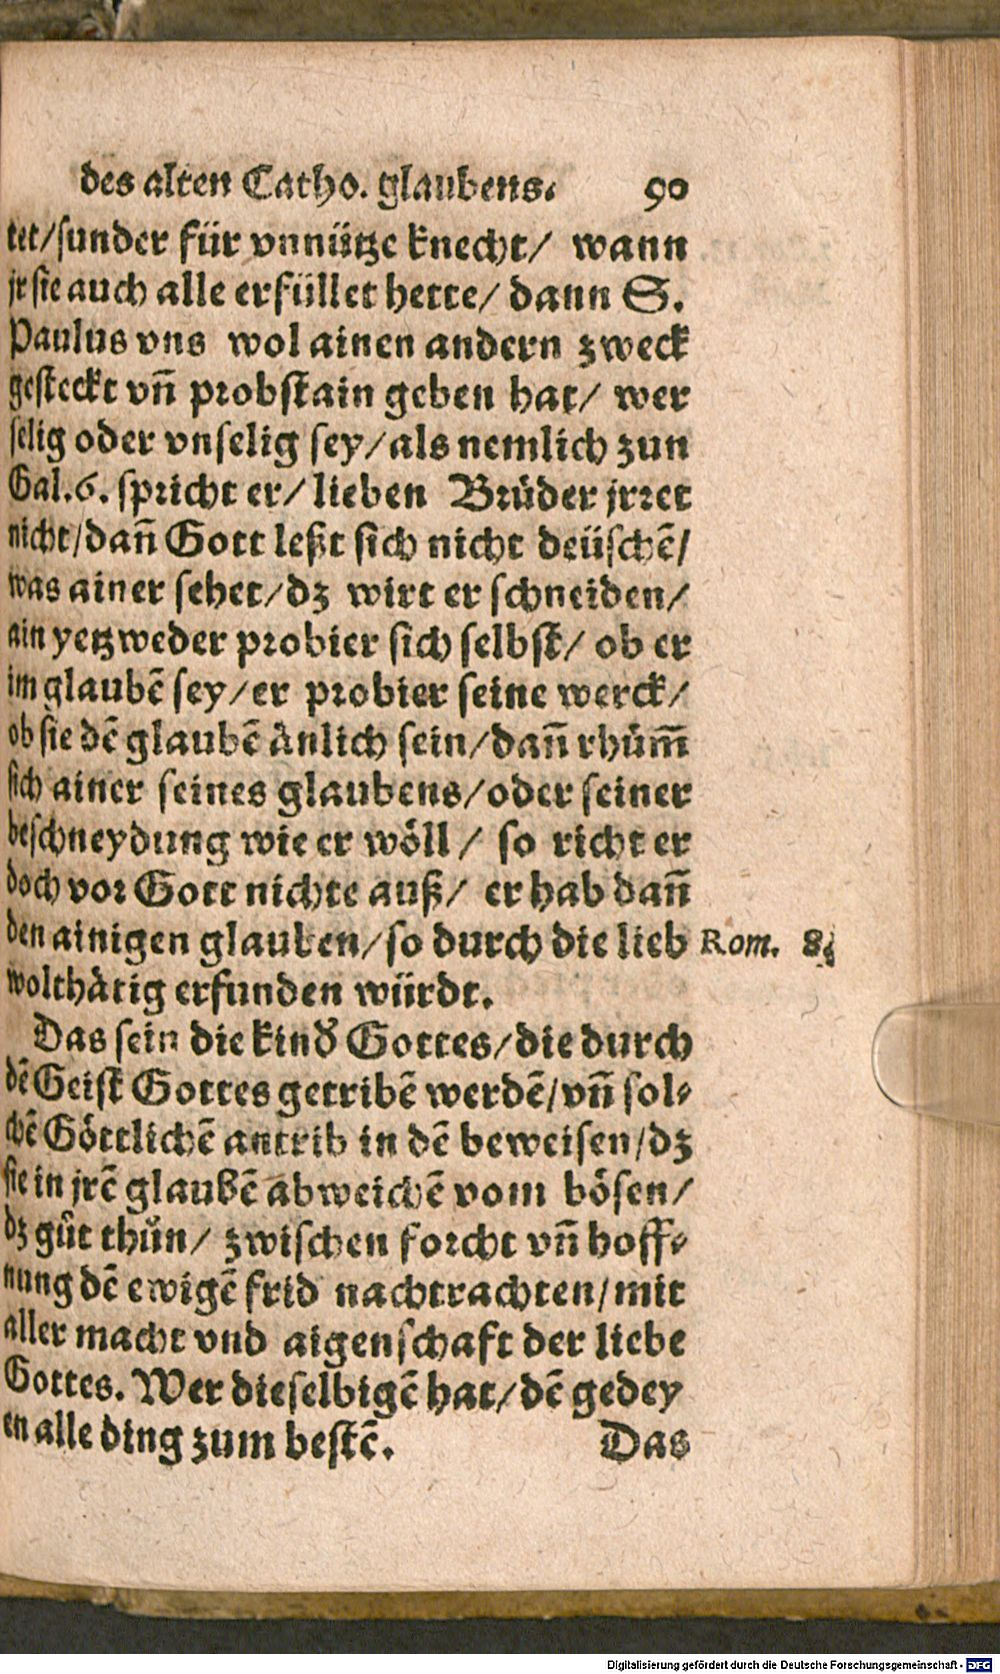 des alten Catho. glaubens. 90
tet/sunder für vnnütze knecht/ wann
jr sie auch alle erfüllet hette/ dann S.
Paulus vns wol ainen andern zweck
gesteckt vñ probstain geben hat/ wer
selig oder vnselig sey/als nemlich zun
Gal.6. spricht er/ lieben Brüder jrret
nicht/dañ Gott leßt sich nicht deüschẽ/
was ainer sehet/dz wirt er schneiden/
ain yetzweder probier sich selbst/ ob er
im glaubẽ sey/er probier seine werck/
ob sie dẽ glaubẽ änlich sein/dañ rhüm̃
sich ainer seines glaubens/oder seiner
beschneydung wie er wöll/ so richt er
doch vor Gott nichte auß/ er hab dañ
den ainigen glauben/so durch die lieb Rom. 8.
wolthätig erfunden würdt.
Das sein die kind̃ Gottes/die durch
dẽ Geist Gottes getribẽ werdẽ/vñ sol⸗
chẽ Göttlichẽ antrib in dẽ beweisen/dz
sie in jrẽ glaubẽ abweichẽ vom bösen/
dz gůt thůn/ zwischen forcht vñ hoff⸗
nung dẽ ewigẽ frid nachtrachten/mit
aller macht vnd aigenschaft der liebe
Gottes. Wer dieselbigẽ hat/dẽ gedey
en alle ding zum bestẽ. Das
Digitalisierung gefördert durch die Deutsche Forschungsgemeinschaft - DFG